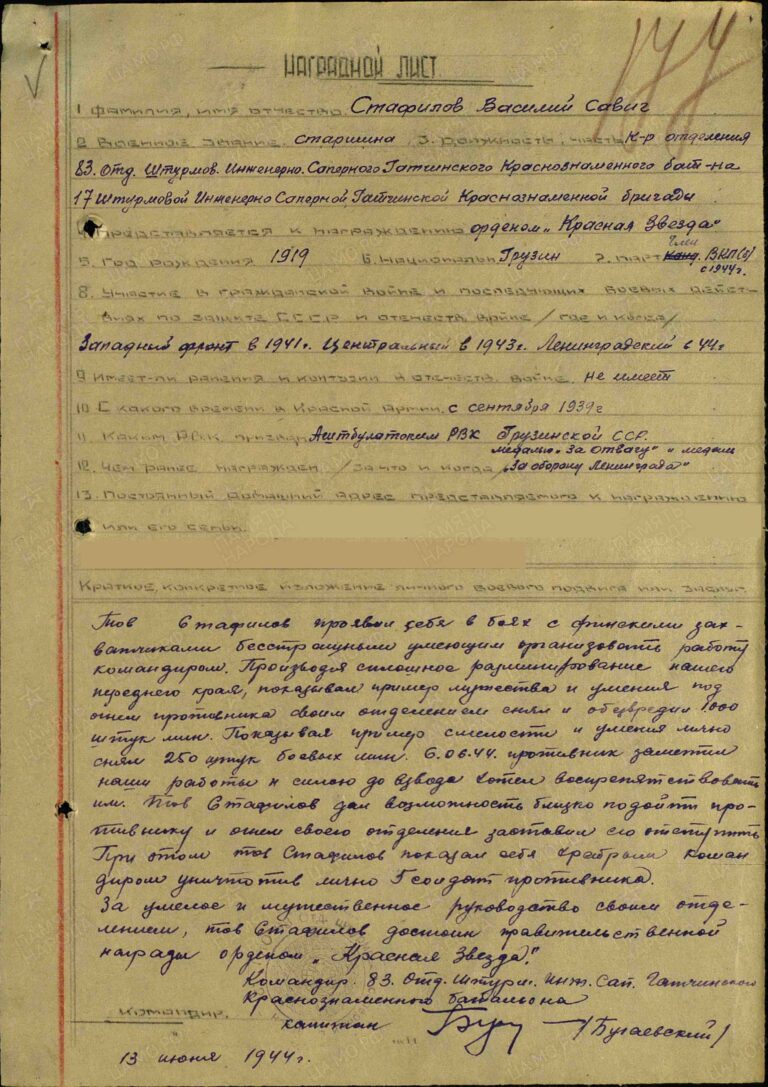 НАГРАДНОЙ ЛИСТ
1 Фамилия, имя отчество. Стафилов Василий Савич
2 Военное звание. старшина 3. Должность, часть К-р отделения
83. Отд. Штурмов. Инженерно. Саперного Гатчинского Краснознаменного бат-на
17 Штурмовой Инженерно Саперной Гатчинской Краснознаменной бригады
4 Представляется к награждению орденом „Красная Звезда"
5. Год рождения 1919 6. Национальн Грузин 7. Парт Канд. Член ВКП(б) с 1944г.
8. Участие в гражданской войне и последующих боевых дейст-
виях по защите СССР и отечеств. войне /где и когда/
Западный фронт в 1941г. Центральный в 1943г. Ленинградский с 44г
9 Имеет-ли ранения и контузии в отечеств. войне. не имеет
10 С какого времени в Красной Армии. с сентября 1939г
11. Каким РВК призван РВК Грузинской ССР.
медалью „За отвагу" и медаль
12. Чем ранее награжден. /за что и когда/ „За оборону Ленинграда"
13. Постоянный домашний адрес представляемого к награждению
и или его семьи.
Краткое, конкретное изложение личного боевого подвига или заслуг.
Тов Стафилов проявил себя в боях с финскими зах-
ватчиками бесстрашным умеющим организовать работу
командиром. Производя сплошное разминирование нашего
переднего края, показывал пример мужества и умения под
огнем противника своим отделением снял и обезвредил 1000
штук мин. Показывая пример смелости и умения лично
снял 250 штук боевых мин. 6.06.44. противник заметил
наши работы и силою до взвода хотел воспрепятствовать
им. Тов Стафилов дал возможность близко подойти про-
тивнику и огнем своего отделения заставил его отступить
При этом тов Стафилов показал себя храбрым коман
диром уничтотив лично 5 солдат противника.
За умелое и мужественное руководство своим отде-
лением, тов Стафилов достоин правительственной
награды орденом „Красная Звезда".
Командир 83. Отд. Штурм. Инж. Сап. Гатчинского
Краснознаменного батальона
Командир.
капитан /Бугаевский/
13 июня 1944г.